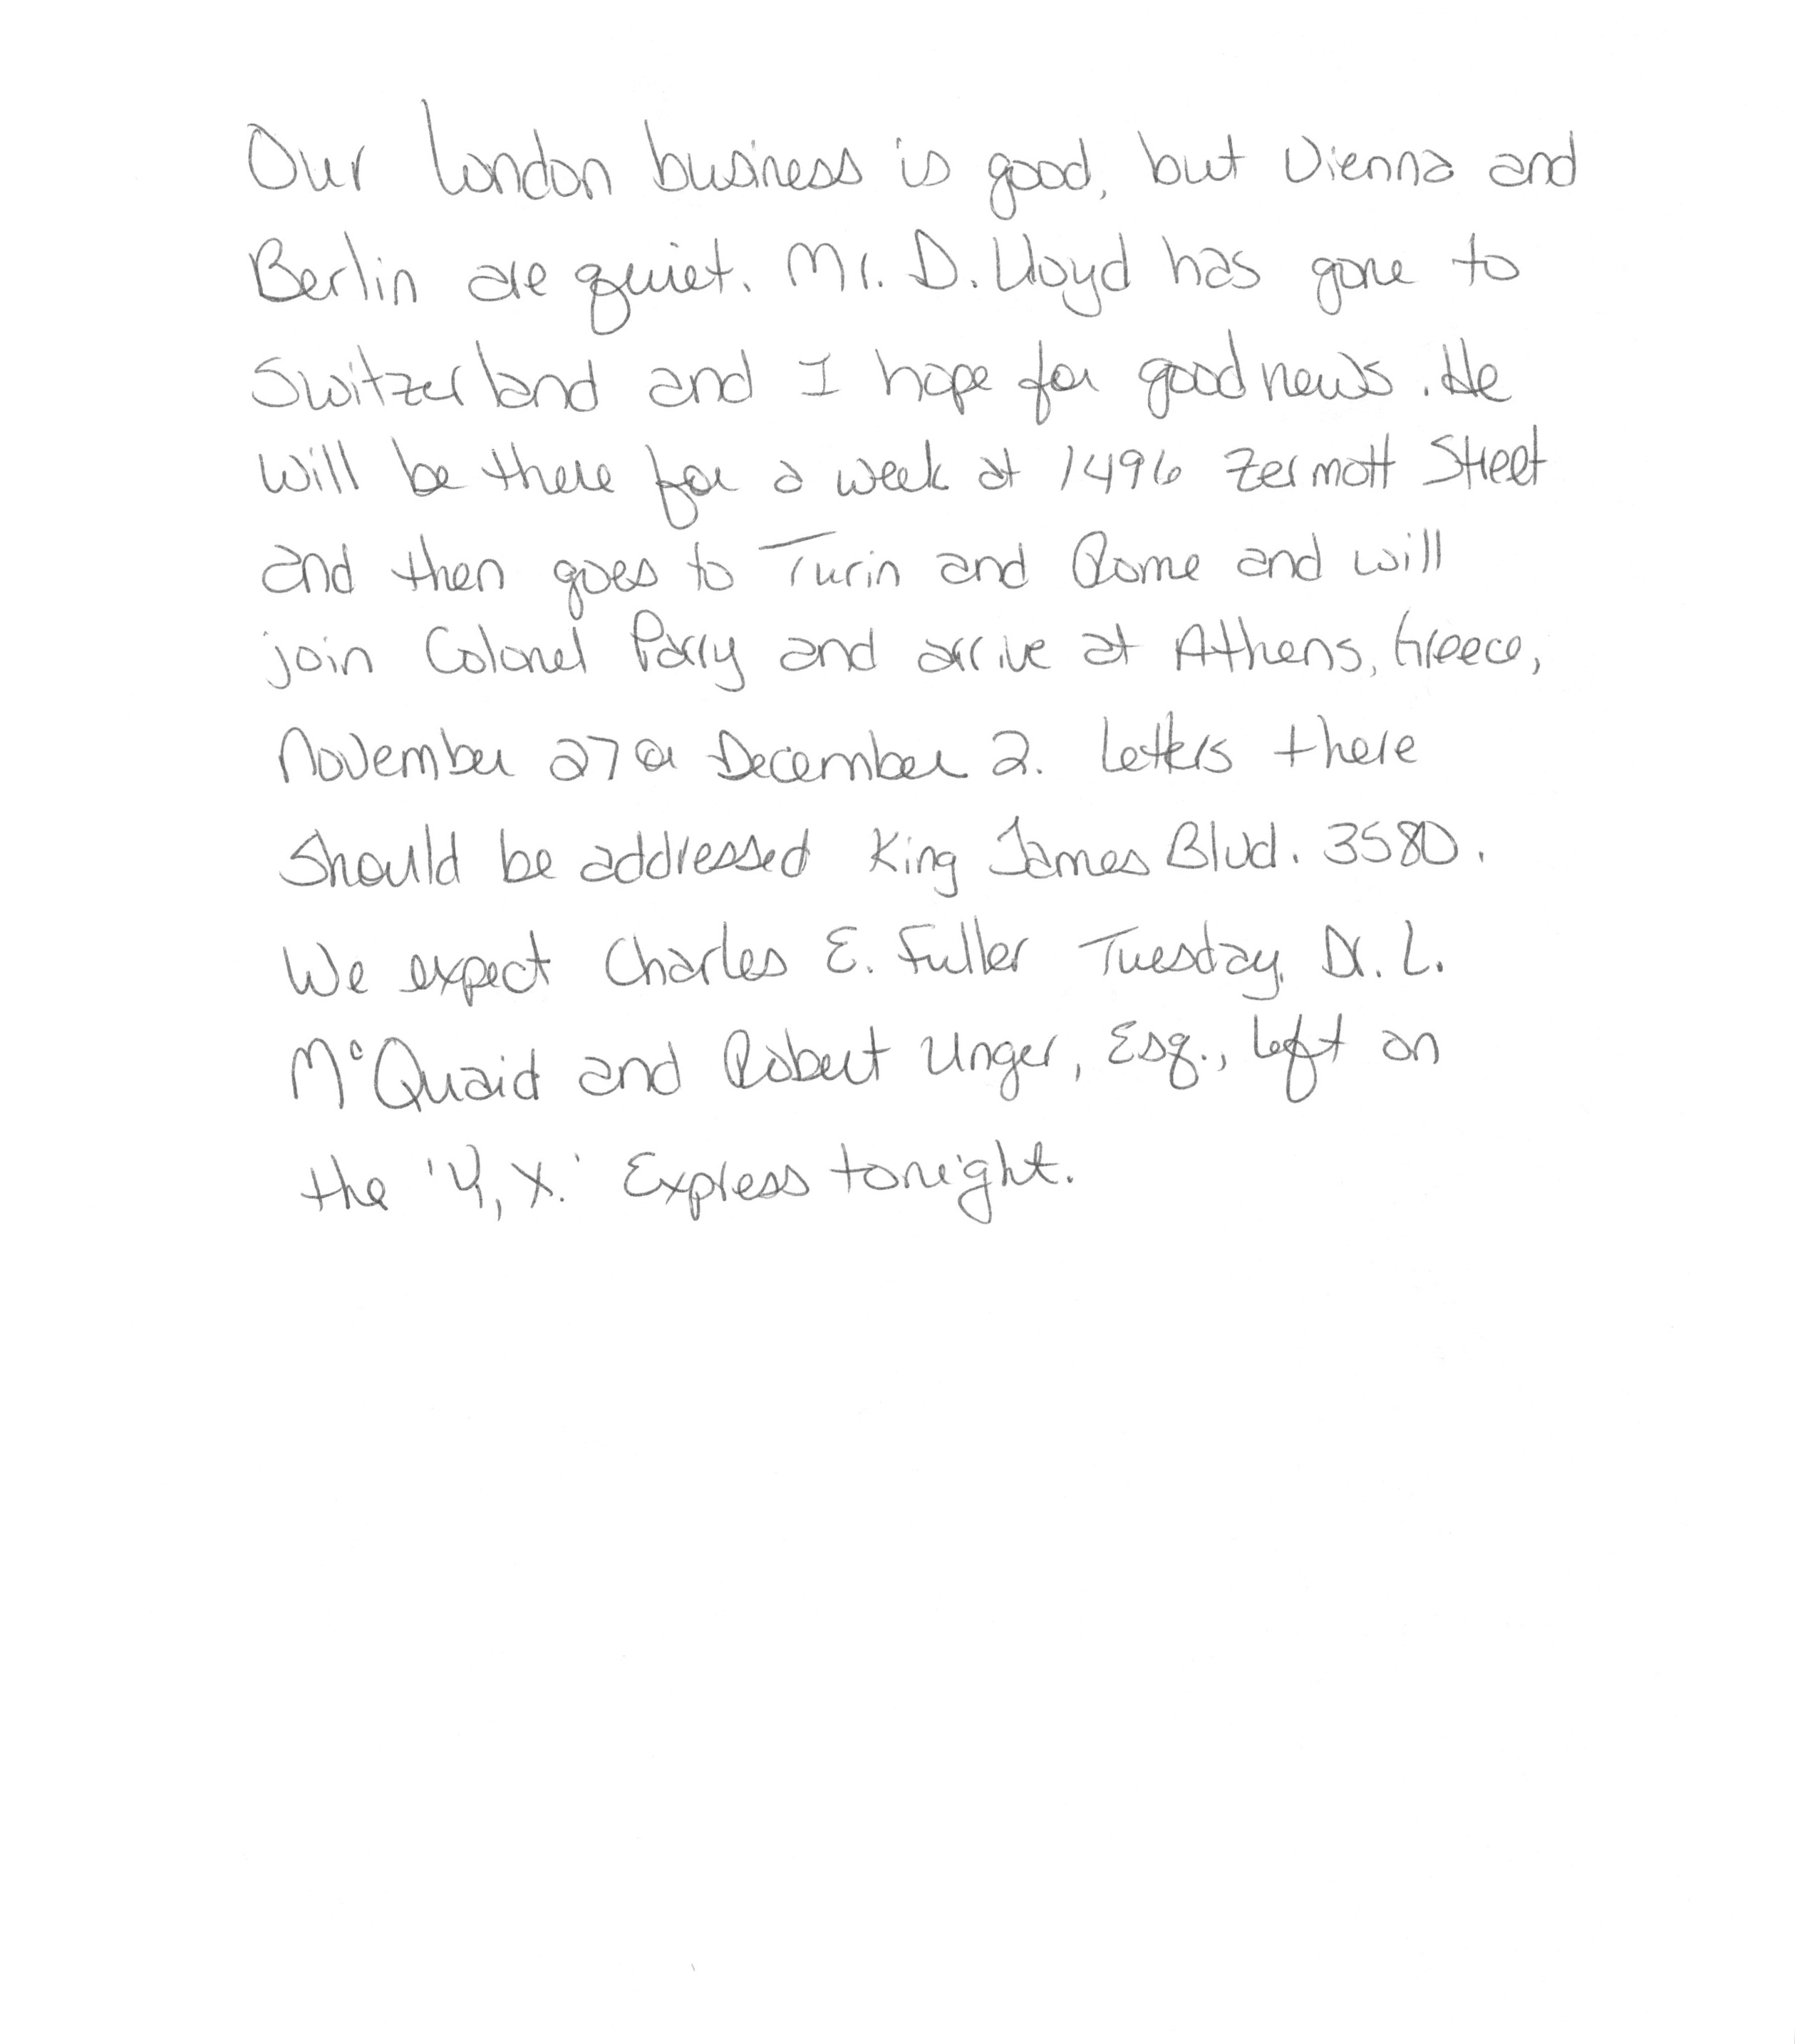 Our London business is good, but Vienna and
Berlin are quiet. Mr. D. Lloyd has gone to
Switzerland and I hope for good news. He
will be there for a week at 1496 Zermott Street
and then goes to Turin and Rome and will
join Colonel Parry and arrive at Athens, Greece,
November 27 or December 2. Letters there
should be addressed King James Blvd. 3580.
We expect Charles E. Fuller Tuesday. Dr. L.
McQuaid and Robert Unger, Esq., left on
the 'Y, X.' Express tonight.